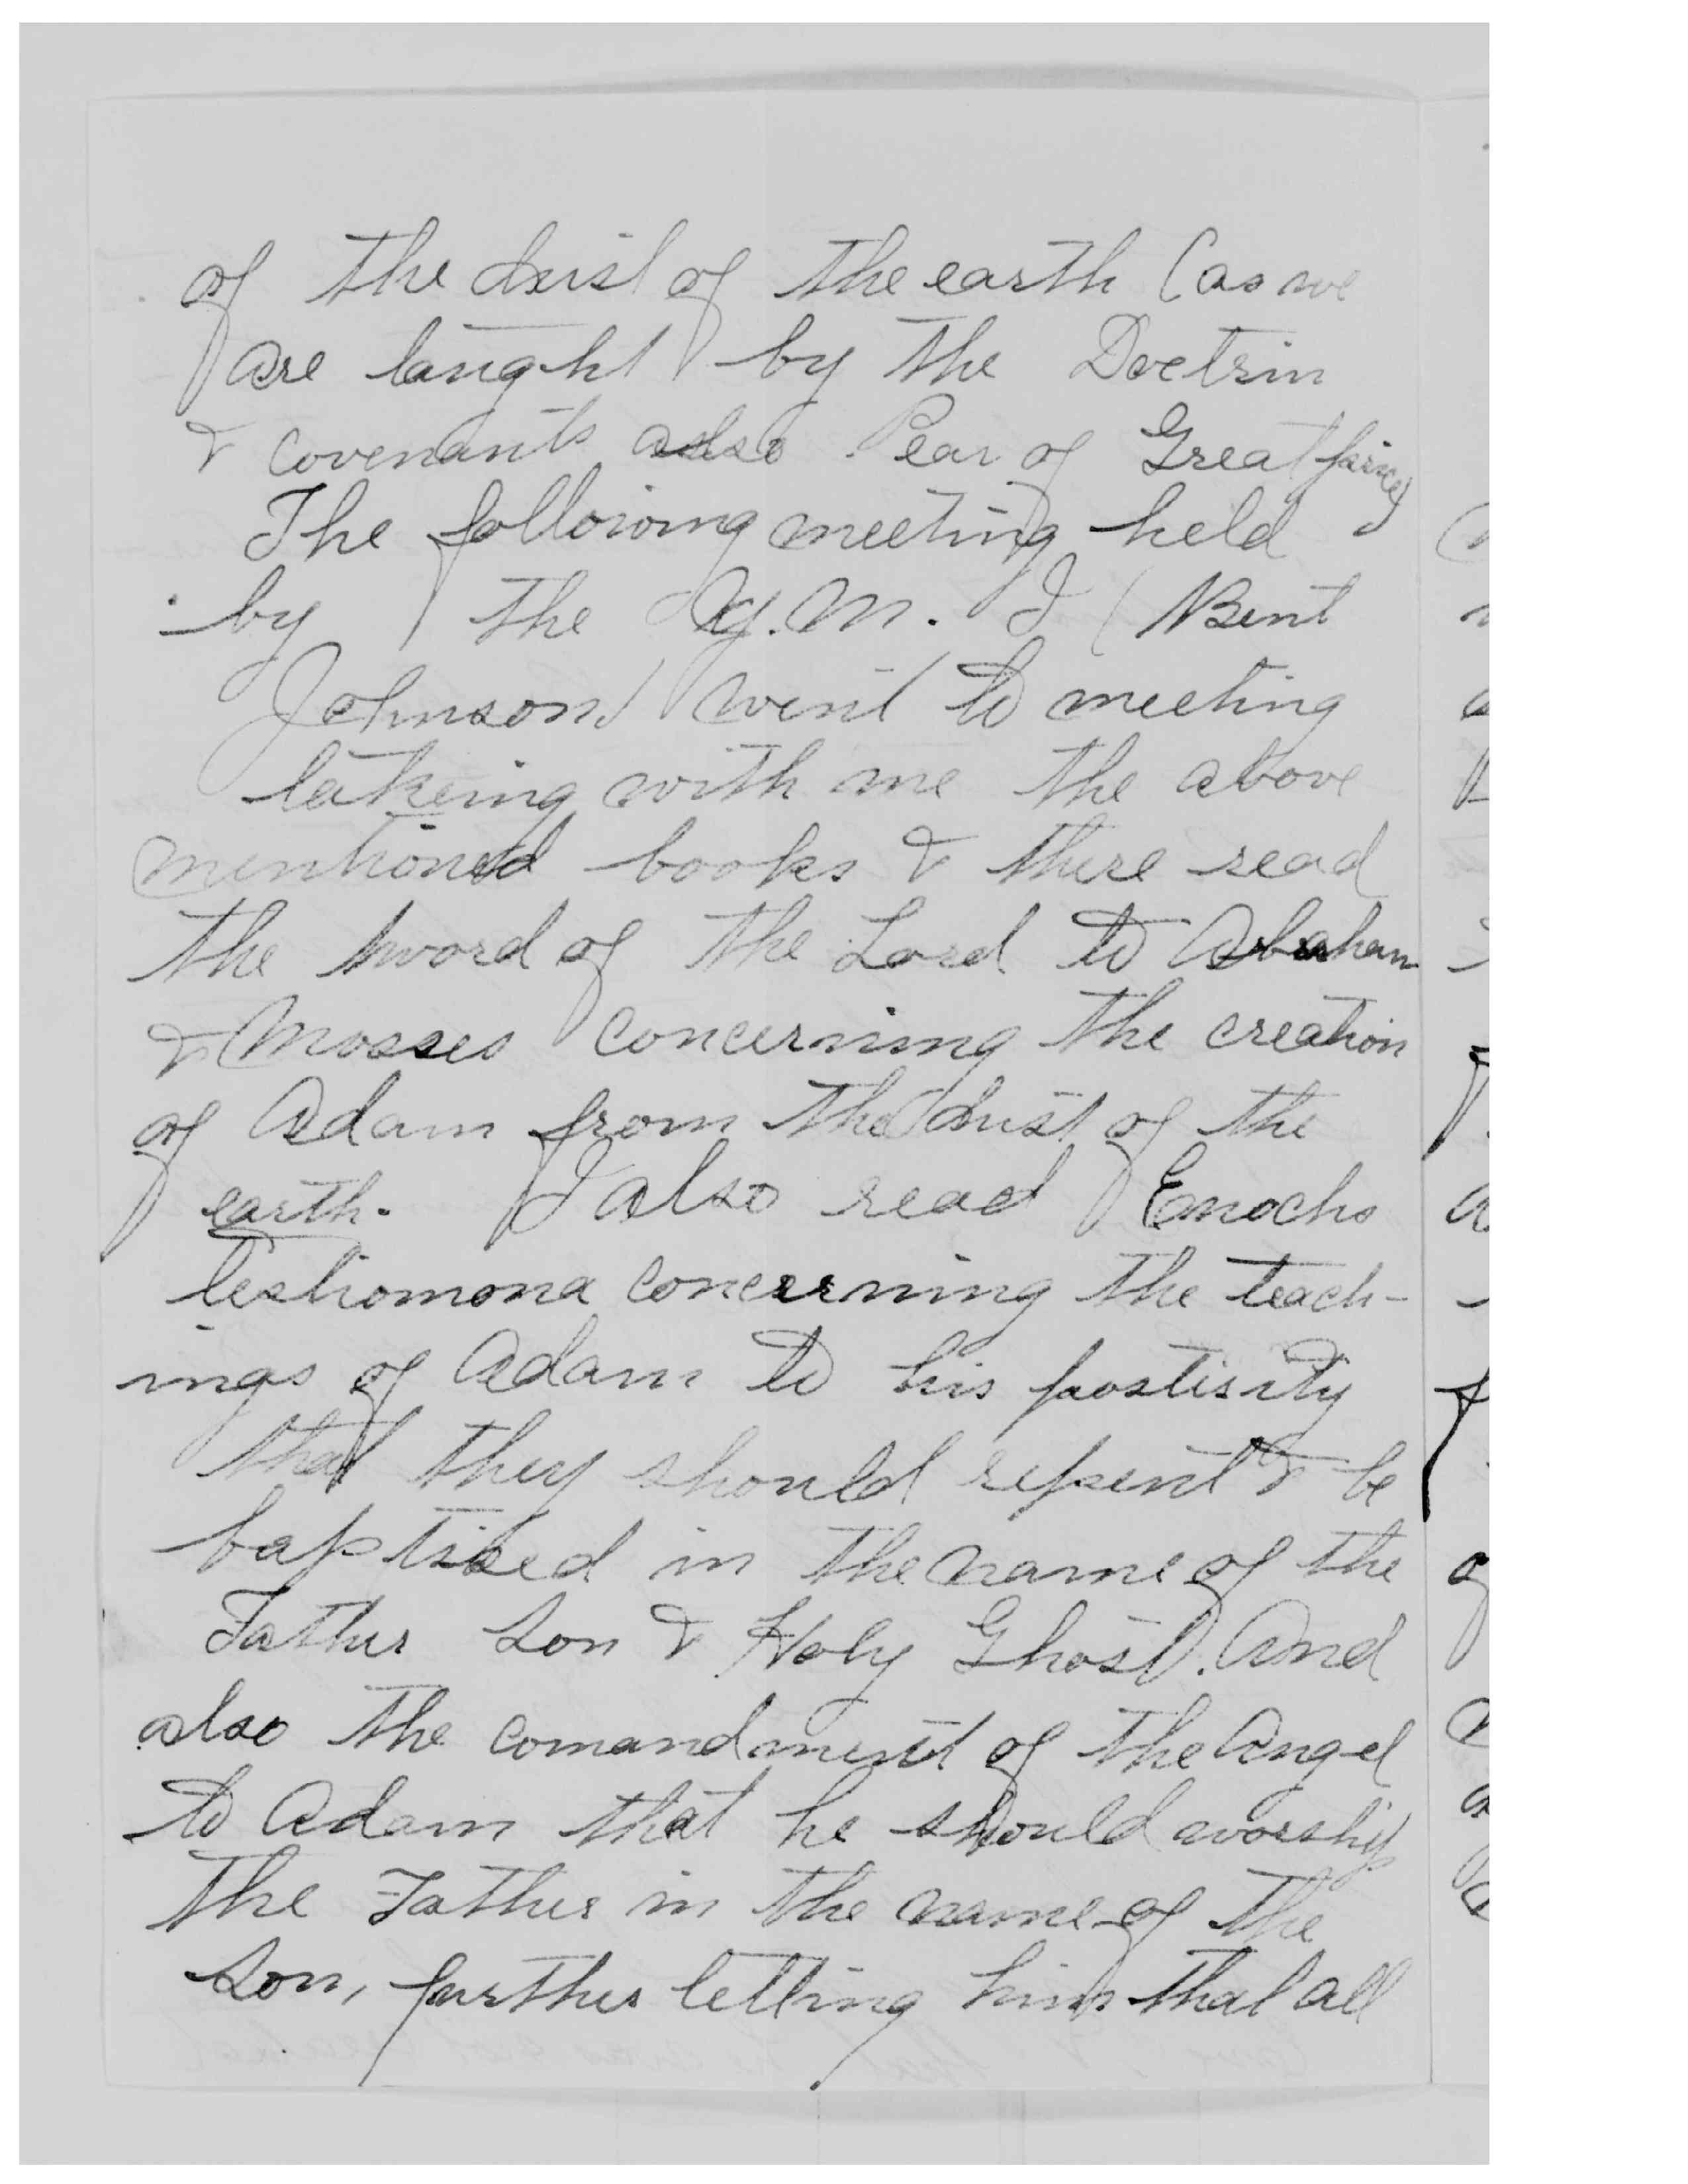 of the dust of the earth (as we
are taught by the Doctrin
& Covenants also Pear of Great price)
The following meeting held
by the Y.M. I (Bent
Johnson) went to meeting
takeing with me the above
mentioned books & there read
the word of the Lord to Abraham
& Mosses concerning the creation
of Adam from the dust of the
earth. I also read Enochs
testiomona concerning the teach-
ings of Adam to his postirity
that they should repent & be
baptised in the name of the
Father Son & Holy Ghost. And
also the comandment of the Angel
to Adam that he should worship
the Father in the name of the
Son, further telling him that all